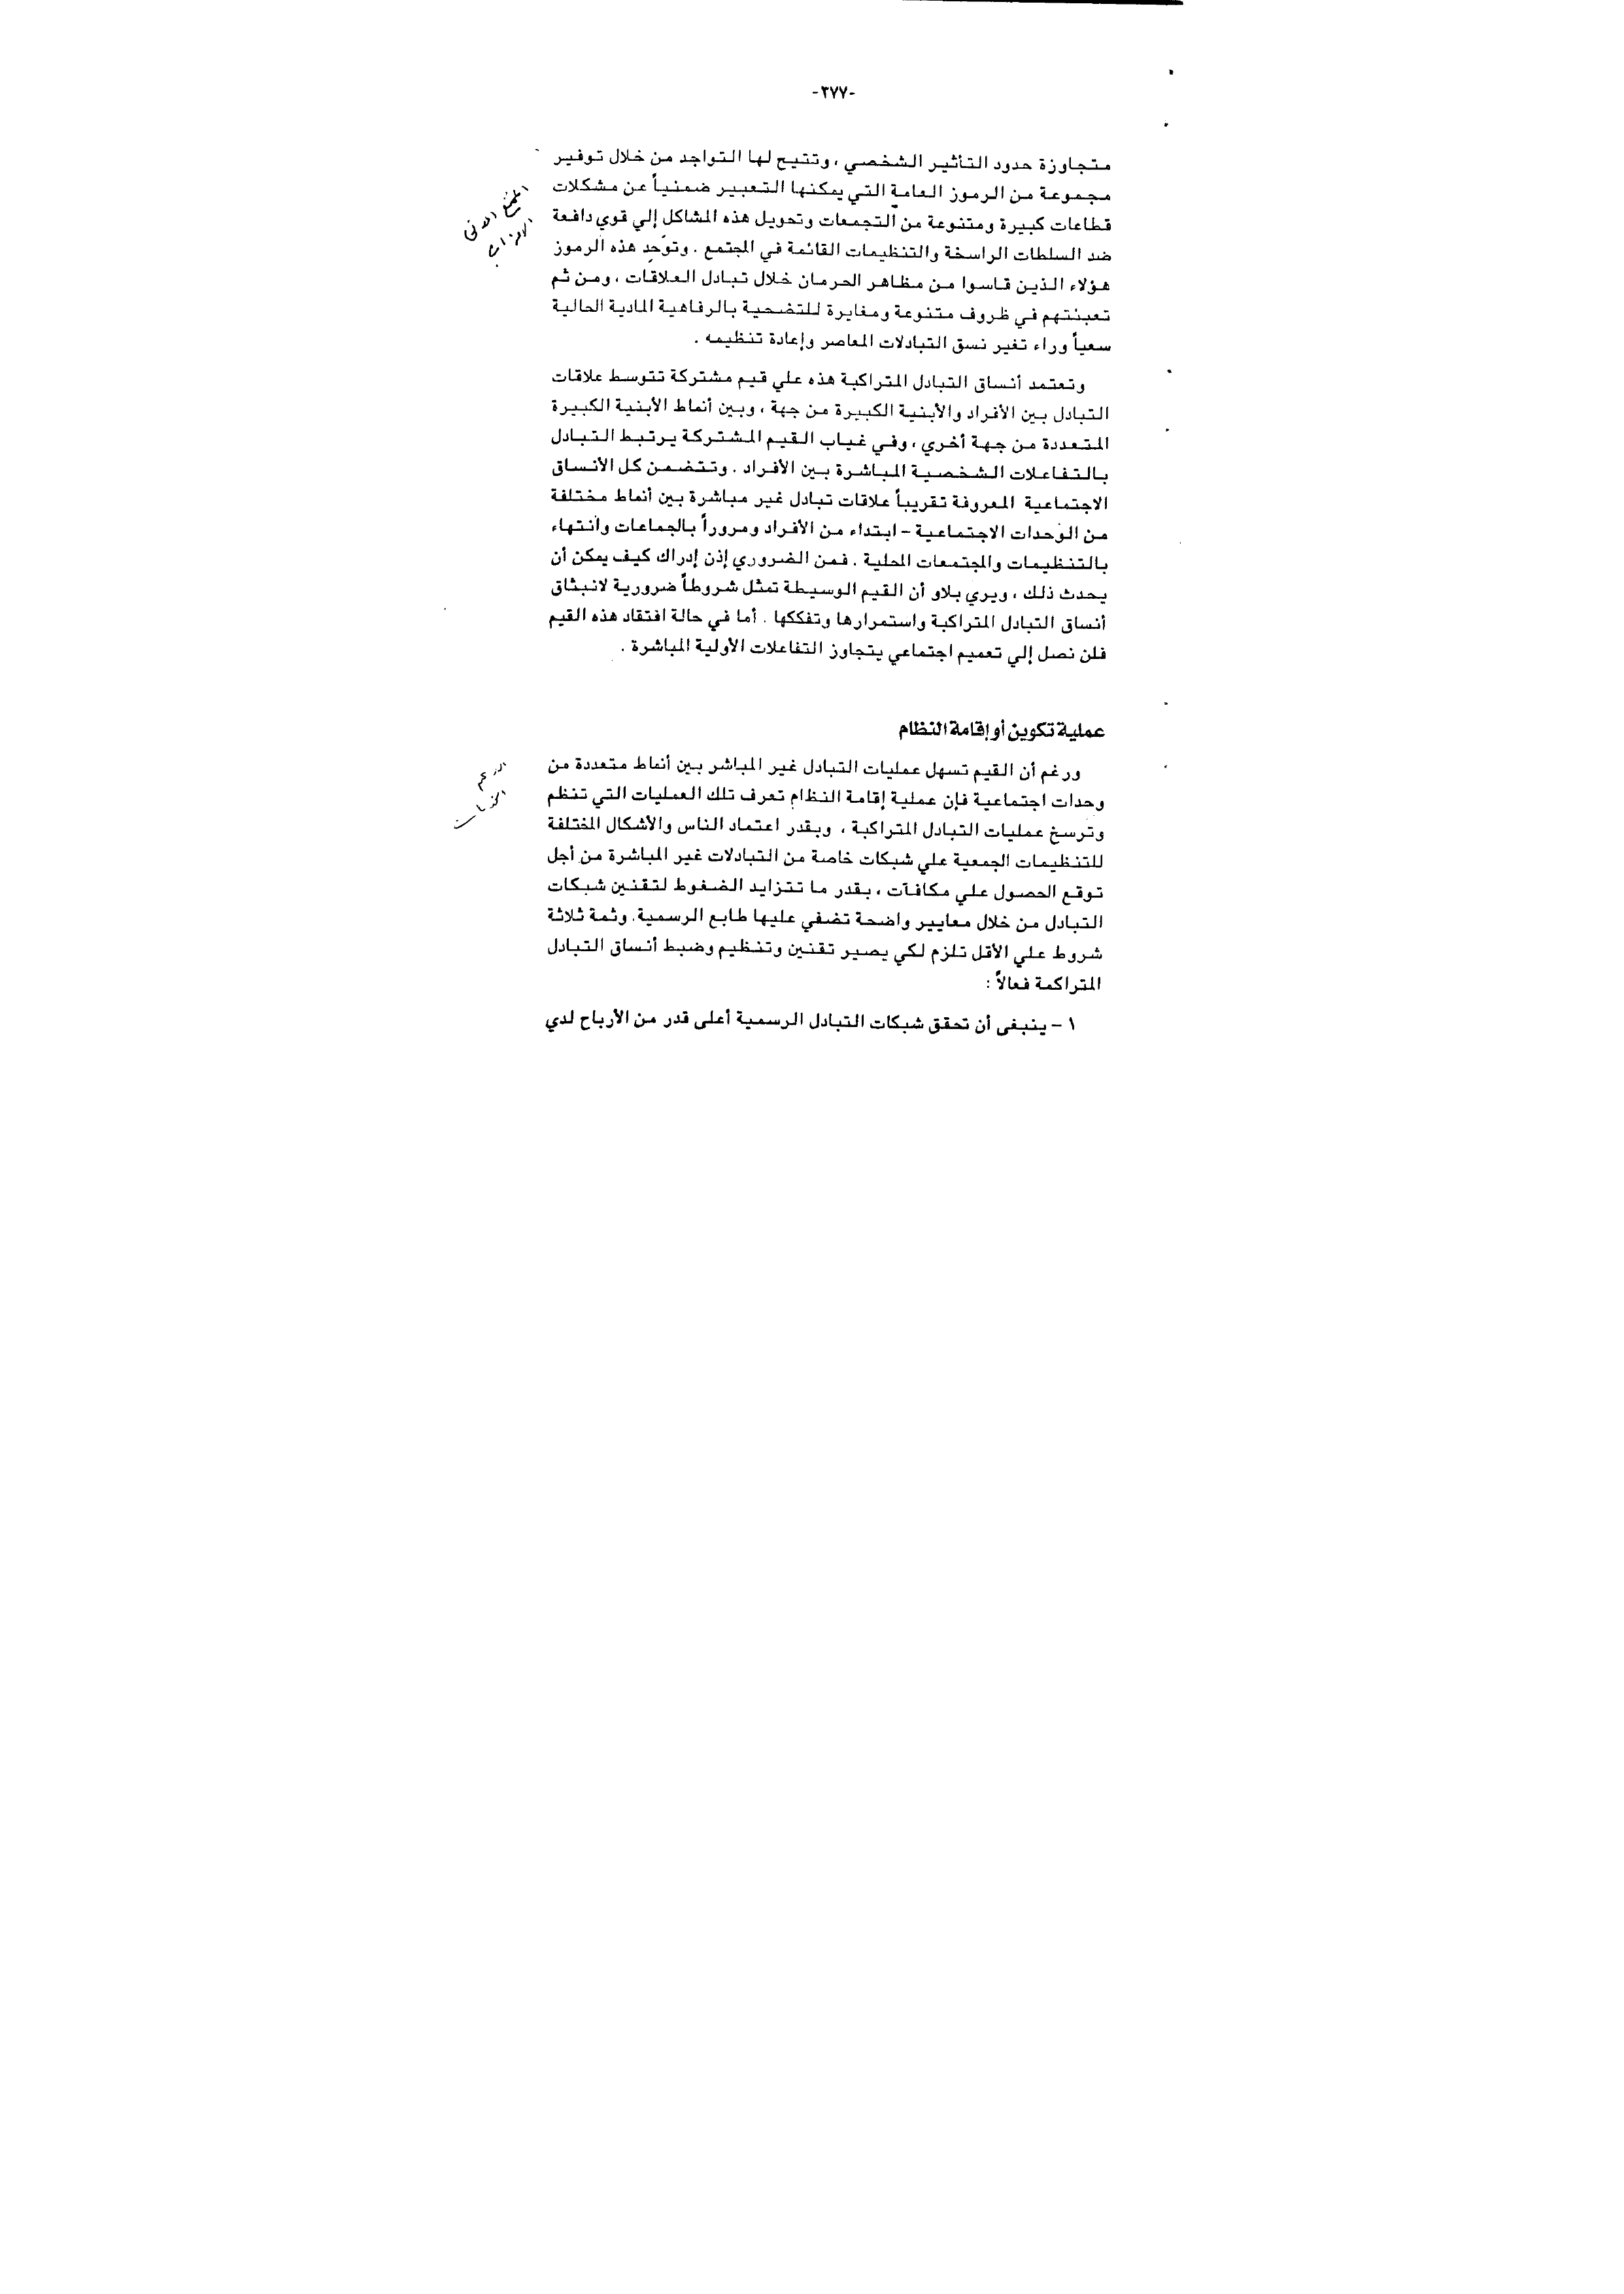 -٢٧٧-
متجاوزة حدود التأثير الشخصي ، وتتيح لها التواجد من خلال توفير
مجموعة من الرموز العامة التي يمكنها التعبير ضمنياً عن مشكلات
قطاعات كبيرة ومتنوعة من التجمعات وتحويل هذه المشاكل إلي قوي دافعة
ضد السلطات الراسخة والتنظيمات القائمة في المجتمع . وتوحد هذه الرموز
هؤلاء الذين قاسوا من مظاهر الحرمان خلال تبادل العلاقات ، ومن ثم
تعبئتهم في ظروف متنوعة ومغايرة للتضحية بالرفاهية المادية الحالية
سعياً وراء تغير نسق التبادلات المعاصر وإعادة تنظيمه .
وتعتمد أنساق التبادل المتراكبة هذه علي قيم مشتركة تتوسط علاقات
التبادل بين الأفراد والأبنية الكبيرة من جهة ، وبين أنماط الأبنية الكبيرة
المتعددة من جهة أخري ، وفي غياب القيم المشتركة يرتبط التبادل
بالتفاعلات الشخصية المباشرة بين الأفراد . وتتضمن كل الأنساق
الاجتماعية المعروفة تقريباً علاقات تبادل غير مباشرة بين أنماط مختلفة
من الوحدات الاجتماعية – ابتداء من الأفراد ومروراً بالجماعات وانتهاء
بالتنظيمات والمجتمعات المحلية . فمن الضروري إذن إدراك كيف يمكن أن
يحدث ذلك ، ويري بلاو أن القيم الوسيطة تمثل شروطاً ضرورية لانبثاق
أنساق التبادل المتراكبة واستمرارها وتفككها . أما في حالة افتقاد هذه القيم
فلن نصل إلي تعميم اجتماعي يتجاوز التفاعلات الأولية المباشرة .
عملية تكوين أو إقامة النظام
ورغم أن القيم تسهل عمليات التبادل غير المباشر بين أنماط متعددة من
وحدات اجتماعية فإن عملية إقامة النظام تعرف تلك العمليات التي تنظم
وترسخ عمليات التبادل المتراكبة ، وبقدر اعتماد الناس والأشكال المختلفة
للتنظيمات الجمعية علي شبكات خاصة من التبادلات غير المباشرة من أجل
توقع الحصول علي مكافآت ، بقدر ما تتزايد الضغوط لتقنين شبكات
التبادل من خلال معايير واضحة تضفي عليها طابع الرسمية. وثمة ثلاثة
شروط علي الأقل تلزم لكي يصير تقنين وتنظيم وضبط أنساق التبادل
المتراكمة فعالاً :
١ – ينبغى أن تحقق شبكات التبادل الرسمية أعلى قدر من الأرباح لدي